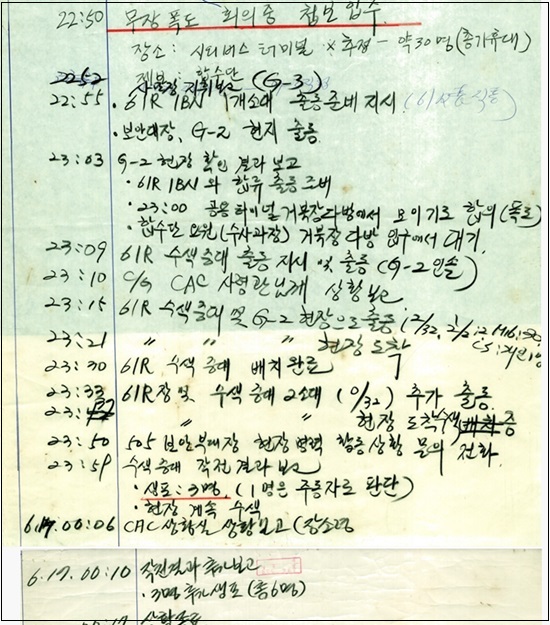 22:50 무장 폭도 회의중 첩보 입수.
장소: 시외버스 터미널 × 추정 - 약30명(총기휴대)
제보: 합수단
2252 사령관 지휘보고 (G-3)
22:55 · 61R 1BN 1개소대 출동준비 지시
· 보안대장, G-2 현지 출동
23:03 G-2 현장 확인 결과 보고
· 61R 1BN 와 합류 출동 준비
· 23:00 공용 터미널 거북장다방에서 모이기로 합의(폭도)
· 합수단 요원(수사과장) 거북장 다방 입구에서 대기.
23:09 61R 수색중대 출동 지시 및 출동 (G-2 인솔)
23:10 C/G CAC 사령관님께 상황보고
23:15 61R 수색중대 및 G-2 현장으로 출동
23:21 〃 〃 〃 현장 도착
23:30 61R 수색 중대 배치 완료
23:33 61R장 및 수색 중대 2소대 (0/32) 추가 출동.
23: 〃 〃 현장 도착 수색 배치 중
23:50 505 보안부대장 현장 병력 활동상황 문의 전화.
23:59 수색 중대 작전 결과 보고
· 생포: 3명. (1명은 주동자로 판단)
· 현장 계속 수색
6.17. 00:06 CAC 상황실 상황보고
6.17. 00:10 작전결과 추가보고
· 3명 추가 생포 (총6명)